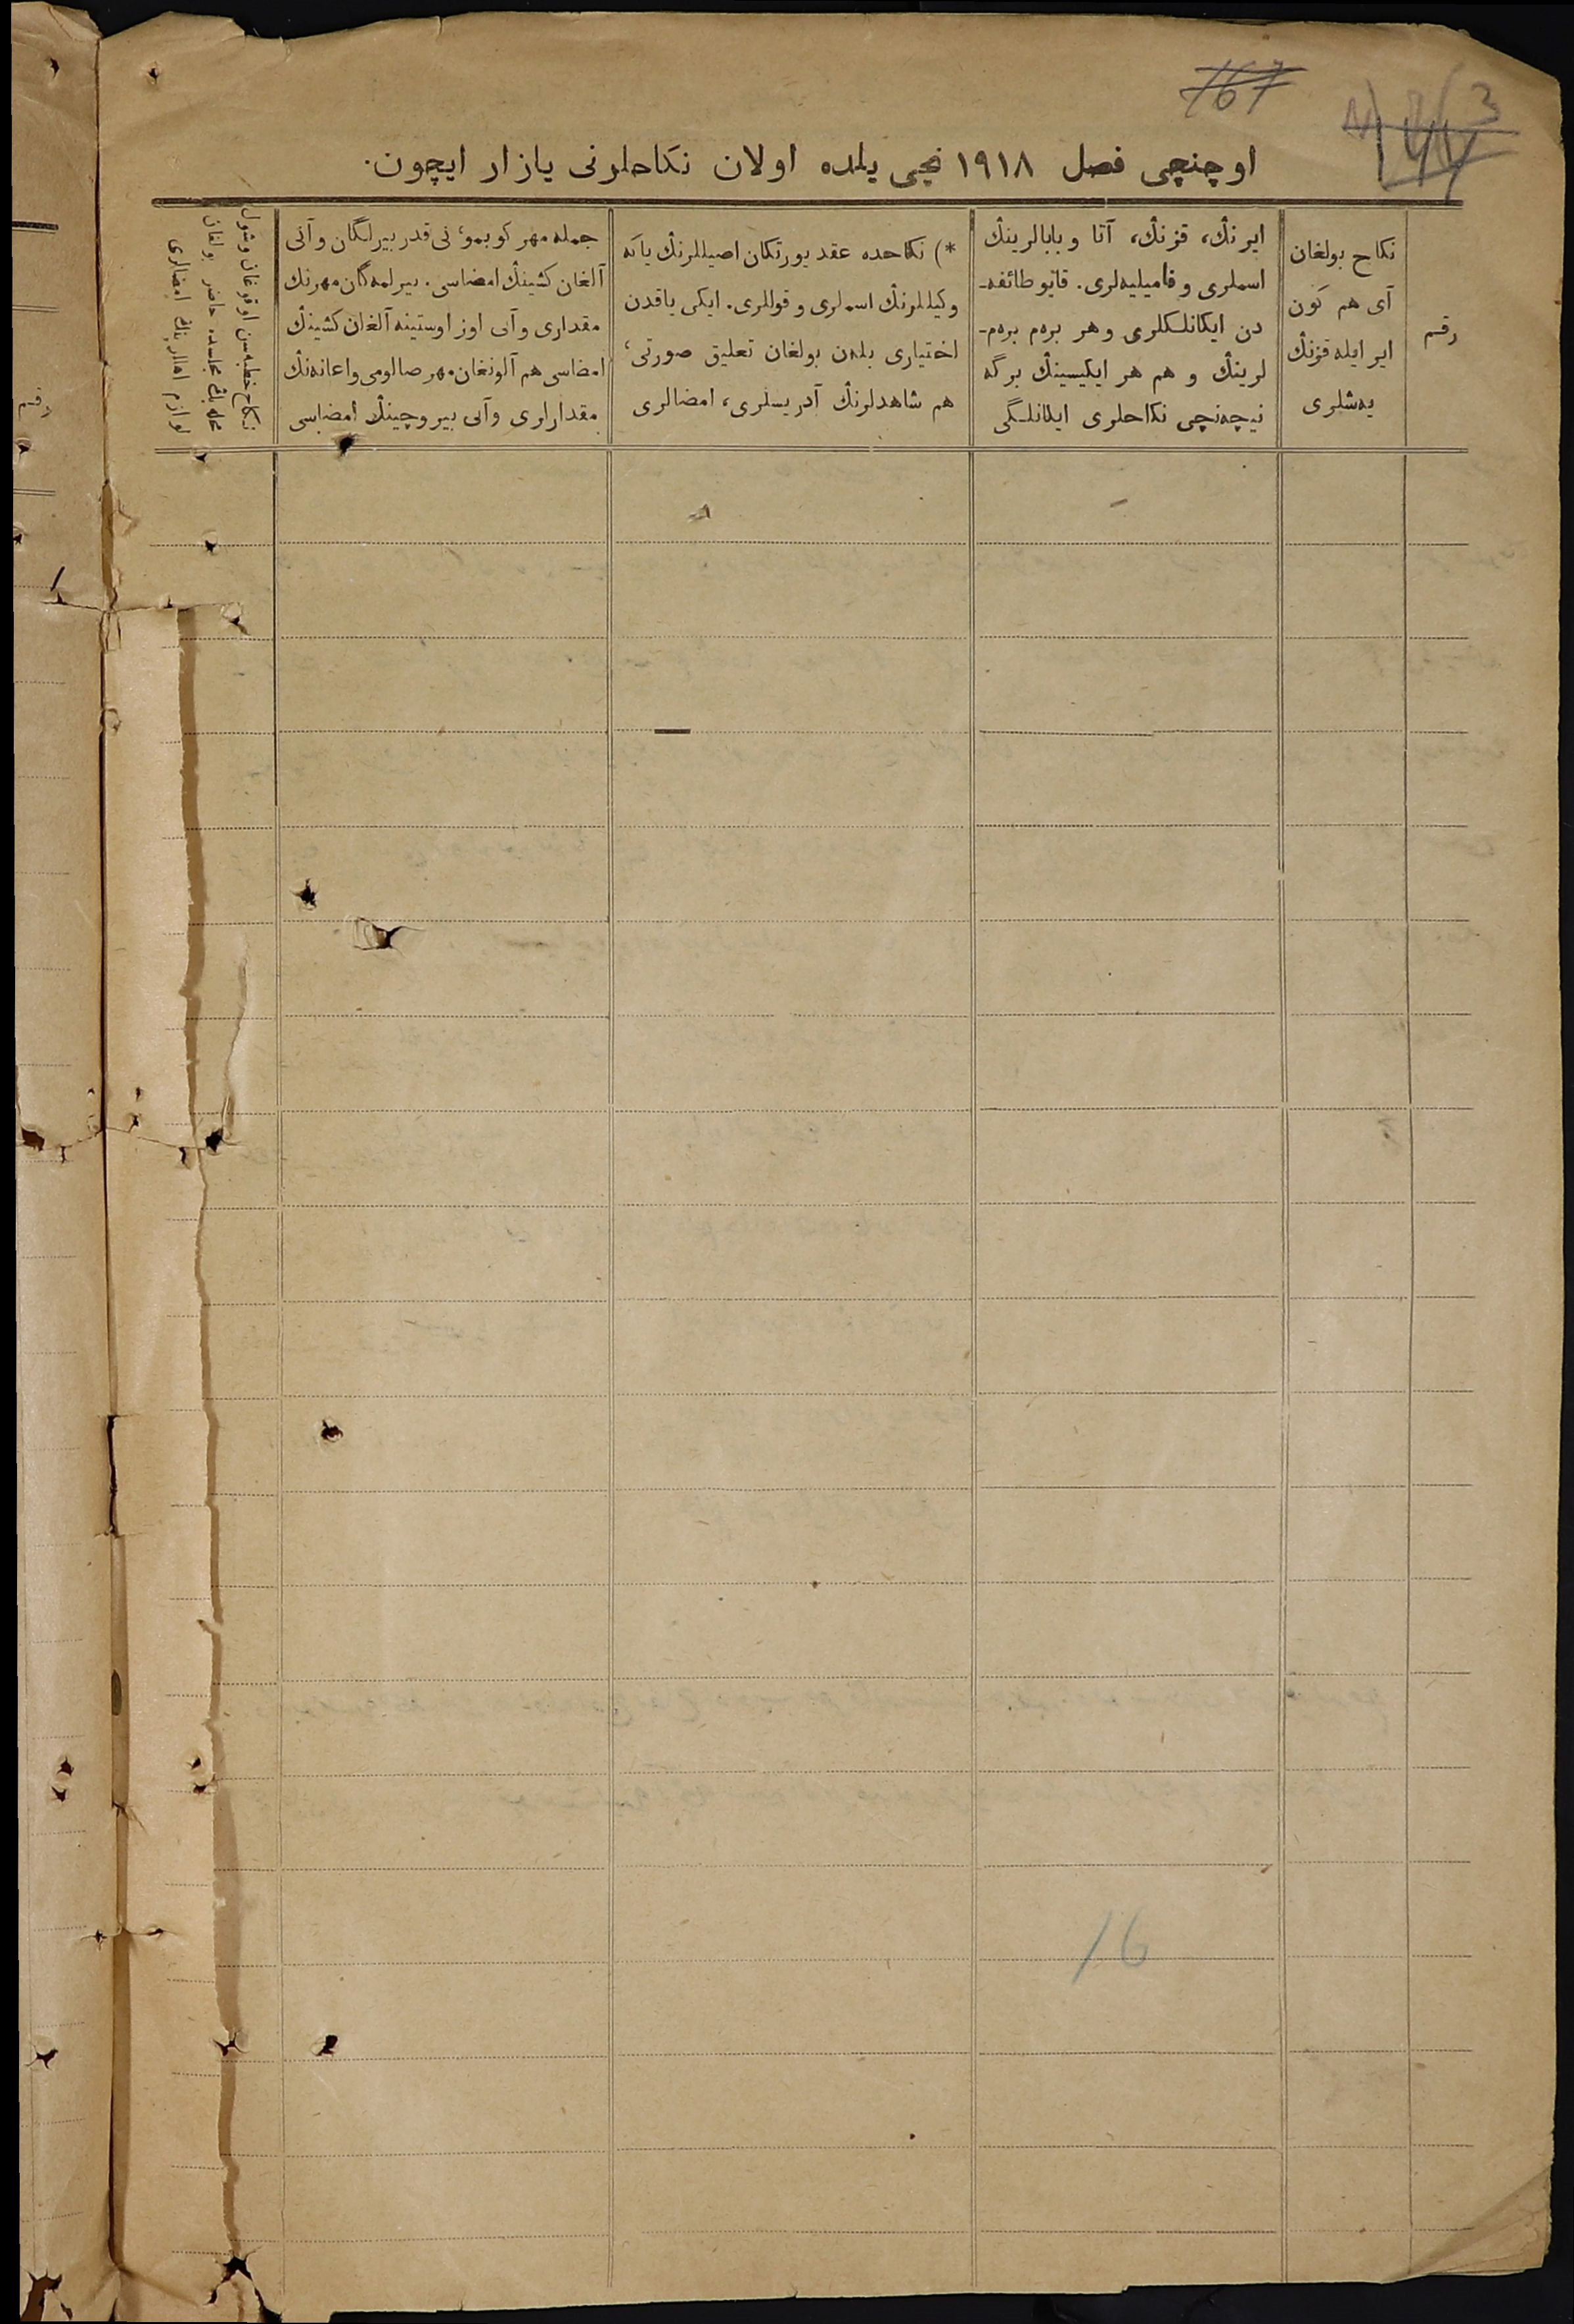 167
3
اوچنچی فصل ۱۹۱۸ نچی یلده اولان نكاحلرنی یازار ایچون.
رقم
نكاح بولغان
آی هم كون
ایر ایله قزنڭ
یه‌شلری
ایرنڭ، قزنڭ، آتا و بابالرینڭ
اسملری و فامیلیه‌لری. قایو طائفه-
دن ایكانلكلری و هر بره‌م بره‌م-
لرینڭ و هم هر ایكیسینڭ برگه
نیچه‌نچی نكاحلری ایكانلگی
*) نكاحده عقد یورتكان اصیللرنڭ یاكه
وكیللرنڭ اسملری و قوللری. ایكی یاقدن
اختیاری بله‌ن بولغان تعلیق صورتی،
هم شاهدلرنڭ آدریسلری، امضالری
جمله مهر كوبمو، نی قدر بیرلگان و آنی
آلغان كشینڭ امضاسی. بیرلمه‌گان مهرنڭ
مقداری و آنی اوز اوستینه آلغان كشینڭ
امضاسی هم آلونغان مهر صالومی و اعانه‌نڭ
مقدارلری و آنی بیروچینڭ امضاسی
نكاح خطبه‌سن اوقوغان و شول
لوازم اماملرینڭ امضالری
رقم
16